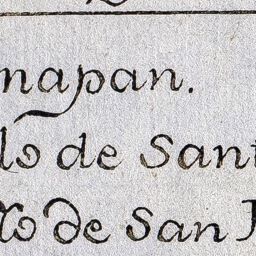 napan.
lo de Sant
lo de San